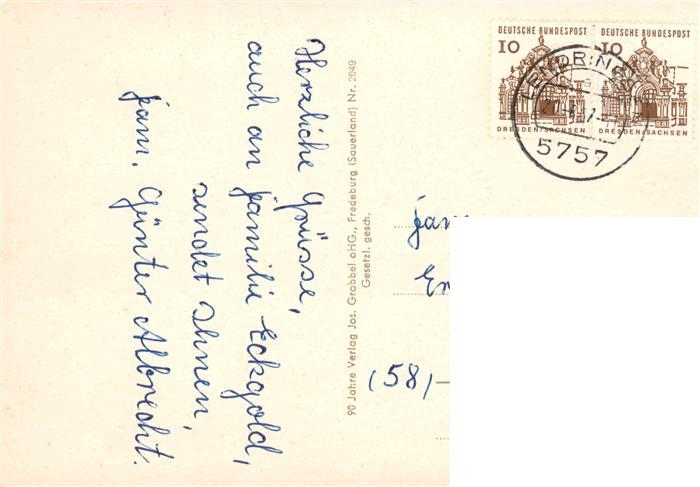 Herzliche Grüsse,
auch an Familie Eckgold,
sendet Ihnen,
Fam. Günter Albrecht.
90 Jahre Verlag Jos. Grobbel oHG., Fredeburg (Sauerland) Nr. 2049
Gesetzl. gesch.
DEUTSCHE BUNDESPOST
10
DRESDEN/SACHSEN
DEUTSCHE BUNDESPOST
10
DRESDEN/SACHSEN
LENDRINGSEN
5757
Fam
(58)